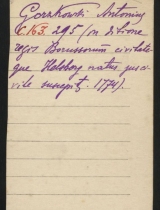 Gorzkowski Antonius
C.163. 295 (in ditione
regis Borussorum civitate
que Helsberg natus jus ci-
vile suscepit 1774).